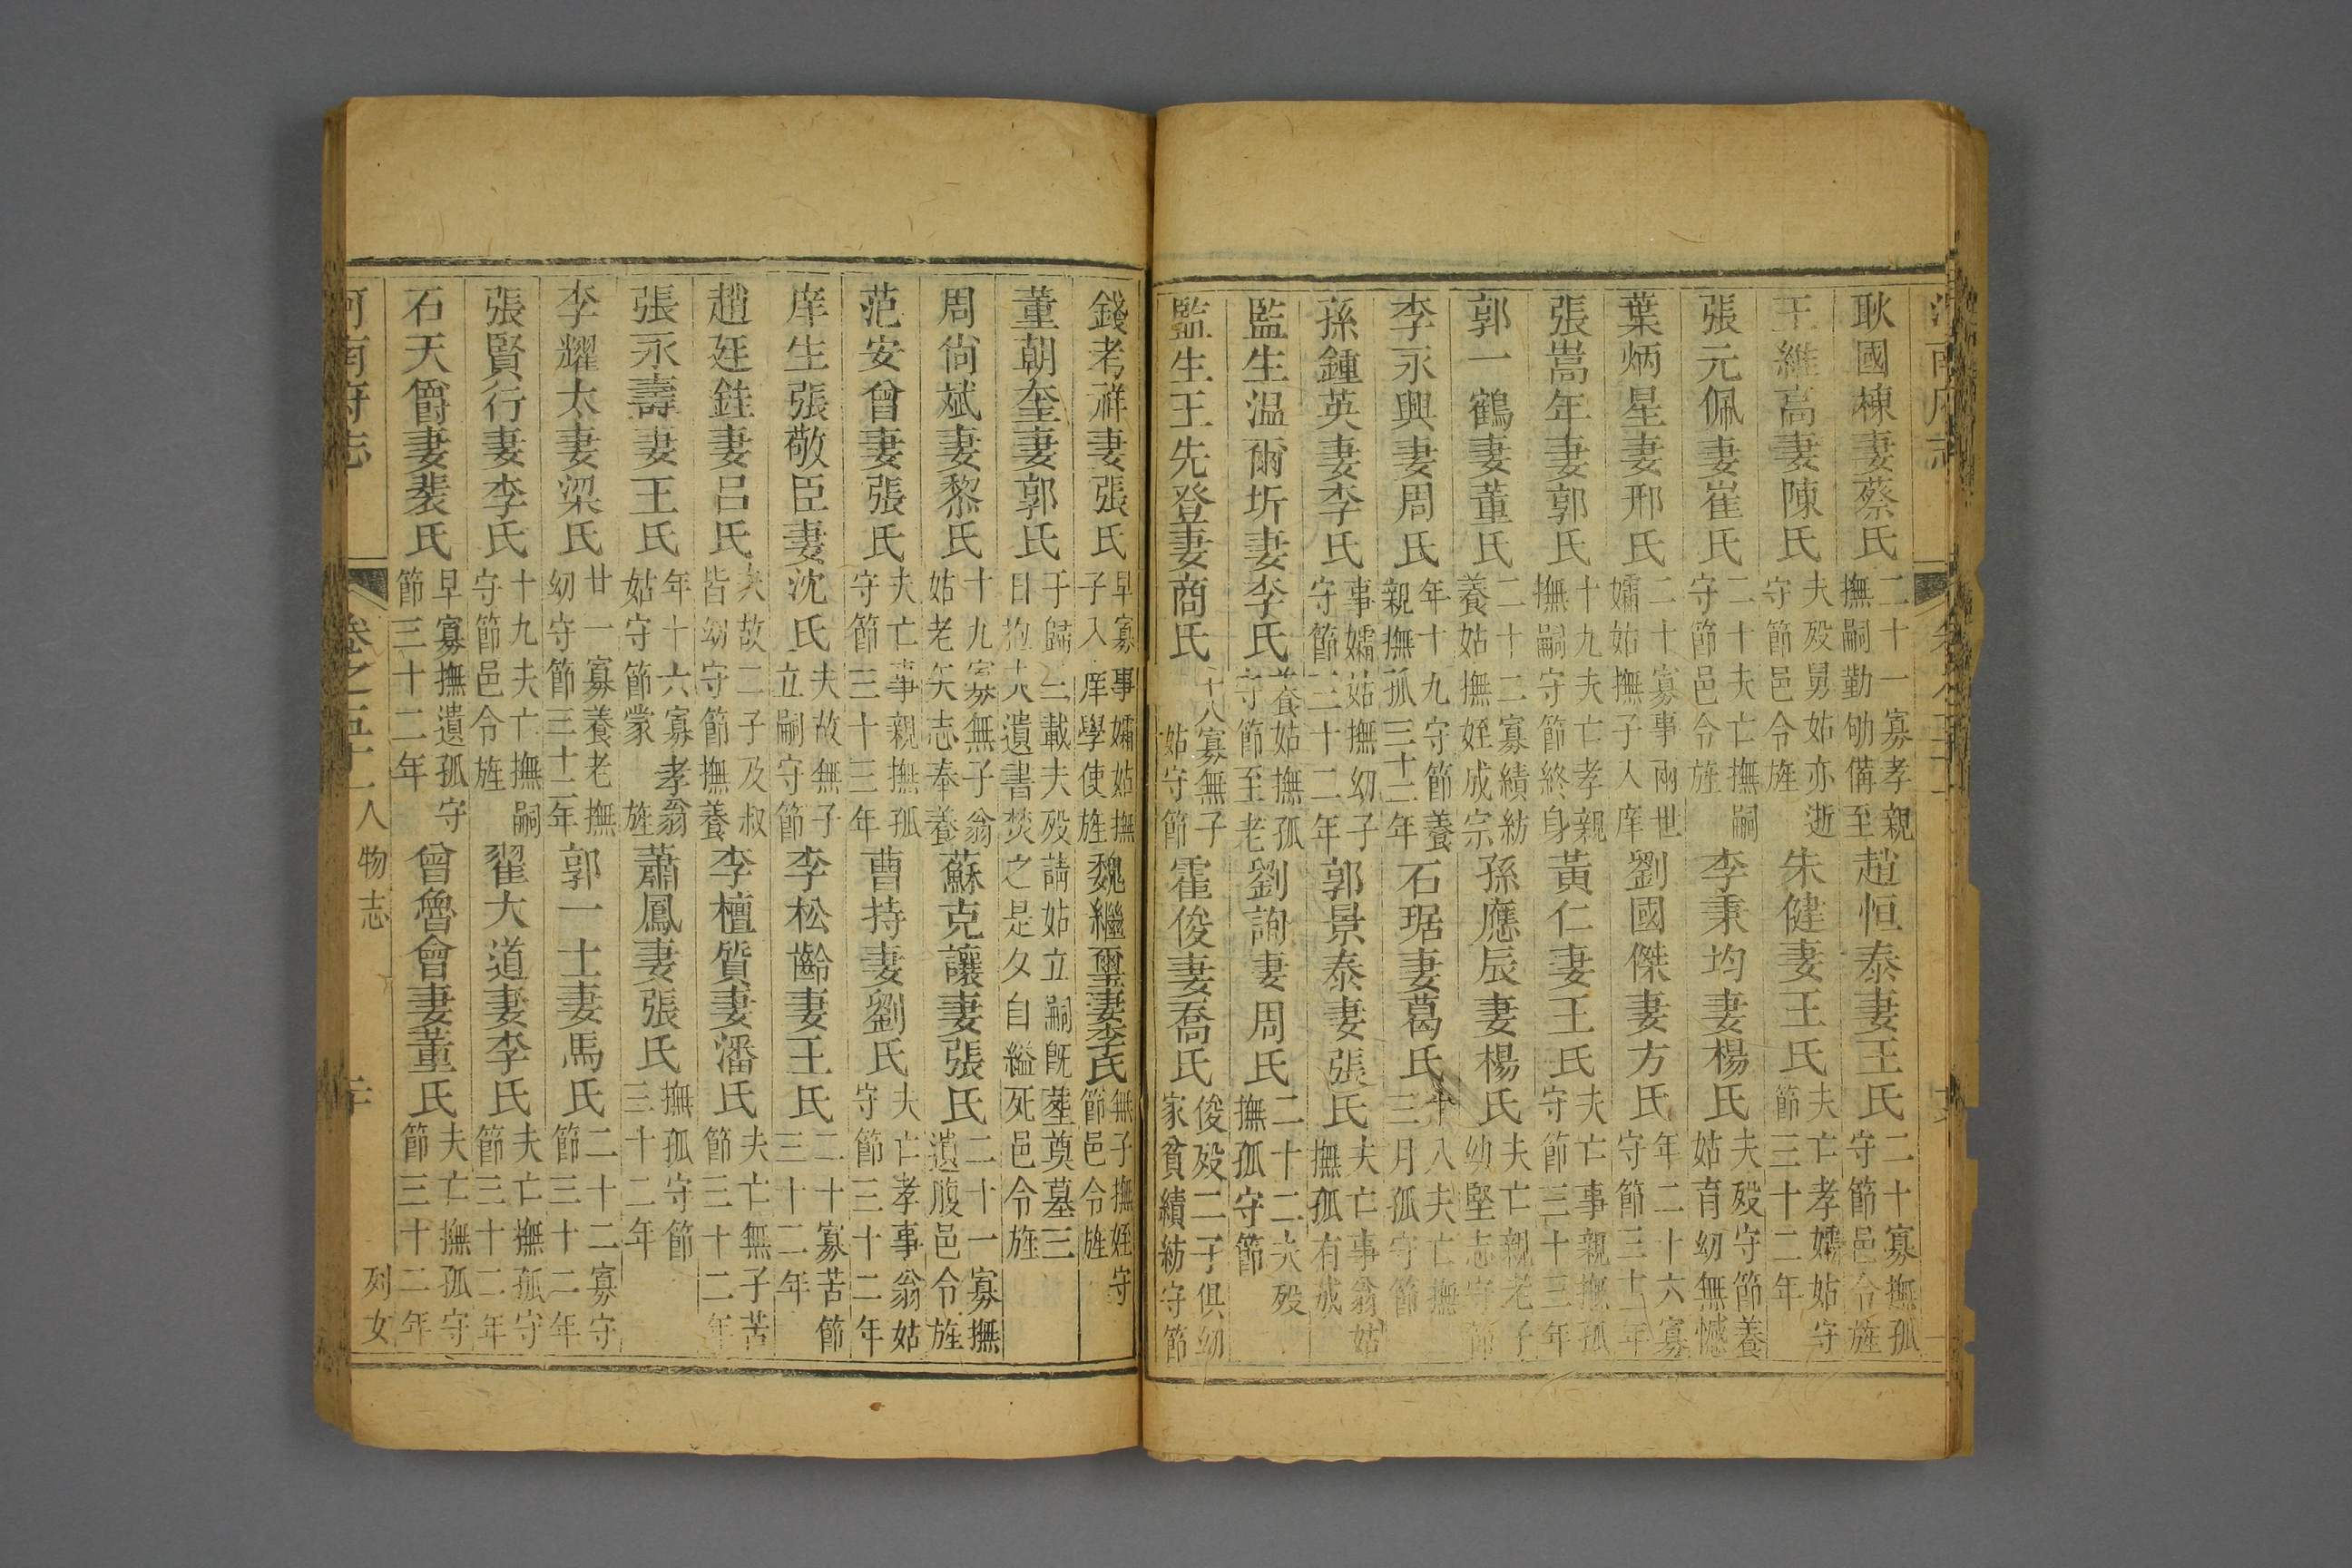 耿國棟妻蔡氏二十一寡孝親撫嗣勤劬備至趙恒泰妻王氏二十寡撫孤守節邑令旌
王維高妻陳氏夫歿舅姑亦逝守節邑令旌朱健妻王氏夫亡孝孀姑守節三十二年
張元佩妻崔氏二十夫亡撫嗣守節邑令旌李秉均妻楊氏夫歿守節養姑育幼無憾
葉炳星妻邢氏二十寡事兩世孀姑撫子人庠劉國傑妻方氏年二十六寡守節三十二年
張嵩年妻郭氏十九夫亡孝親撫嗣守節終身黃仁妻王氏夫亡事親撫孤守節三十三年
郭一鶴妻董氏二十二寡績紡養姑撫姪成宗孫應辰妻楊氏夫亡親老子幼堅志守節
李永興妻周氏年十九守節養親撫孤三十二年石琚妻葛氏十八夫亡撫三月孤守節
孫鍾英妻李氏事孀姑撫幼子守節三十二年郭景泰妻張氏夫亡事翁姑撫孤有成
監生溫爾圻妻李氏養姑撫孤守節至老劉詢妻周氏二十二夫歿撫孤守節
監生王先登妻商氏十八寡無子姑守節霍俊妻喬氏俊歿二子俱幼家貧績紡守節
錢考祥妻張氏早寡事孀姑撫子入庠學使旌魏繼璽妻李氏無子撫姪守節邑令旌
董朝奎妻郭氏于歸三載夫歿請姑立嗣旣葬奠墓三日抱夫遺書焚之是夕自縊死邑令旌
周尙斌妻黎氏十九寡無子翁姑老矢志奉養蘇克讓妻張氏二十一寡撫遺腹邑令旌
范安曾妻張氏夫亡事親撫孤守節三十三年曹持妻劉氏夫亡孝事翁姑守節三十二年
庠生張敬臣妻沈氏夫故無子立嗣守節李松齡妻王氏二十寡苦節三十二年
趙廷銈妻呂氏夫故二子及叔皆幼守節撫養李檀質妻潘氏夫亡無子苦節三十二年
張永壽妻王氏年十六寡孝翁姑守節蒙旌蕭鳳妻張氏撫孤守節三十二年
李耀太妻梁氏廿一寡養老撫幼守節三十二年郭一士妻馬氏二十二寡守節三十二年
張賢行妻李氏十九夫亡撫嗣守節邑令旌翟大道妻李氏夫亡撫孤守節三十二年
石天爵妻裴氏早寡撫遺孤守節三十二年曾魯會妻董氏夫亡撫孤守節三十二年
河南府志 卷之五十一人物志 列女